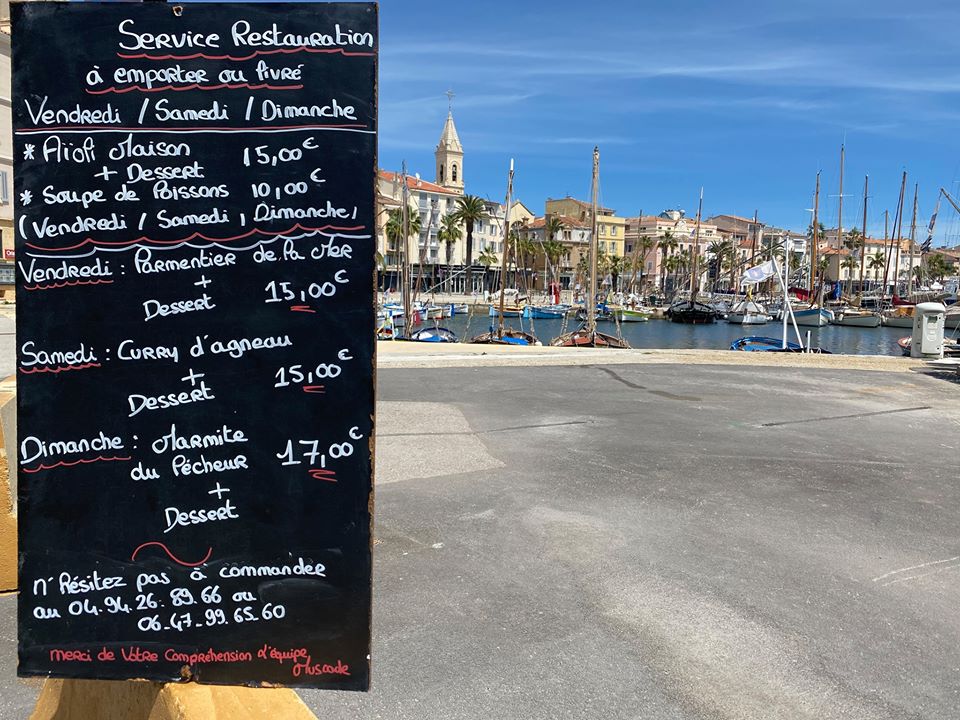 Service Restauration
à emporter ou livré
Vendredi / Samedi / Dimanche
* Aïoli Maison 15,00€
+ Dessert
* Soupe de Poissons 10,00€
(Vendredi / Samedi, Dimanche)
Vendredi : Parmentier de la Mer
+ 15,00€
Dessert
Samedi : Curry d'agneau
+ 15,00€
Dessert
Dimanche : Marmite 17,00€
du Pécheur
+
Dessert
n'hésitez pas à commander
au 04.94.26.89.66 ou
06.47.99.65.60
merci de Votre Compréhension d'équipe,
Muscade